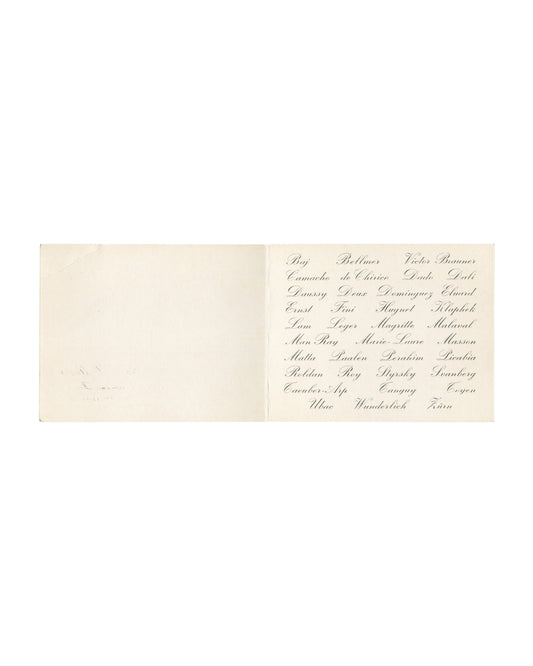 Baj Bellmer Victor Brauner
Camacho de Chirico Dado Dali
Daussy Deux Dominguez Eluard
Ernst Fini Hugnet Klapheck
Lam Leger Magritte Malaval
Man Ray Marie-Laure Masson
Matta Paalen Perahim Picabia
Roldan Roy Styrsky Svanberg
Taeuber-Arp Tanguy Toyen
Ubac Wunderlich Zürn